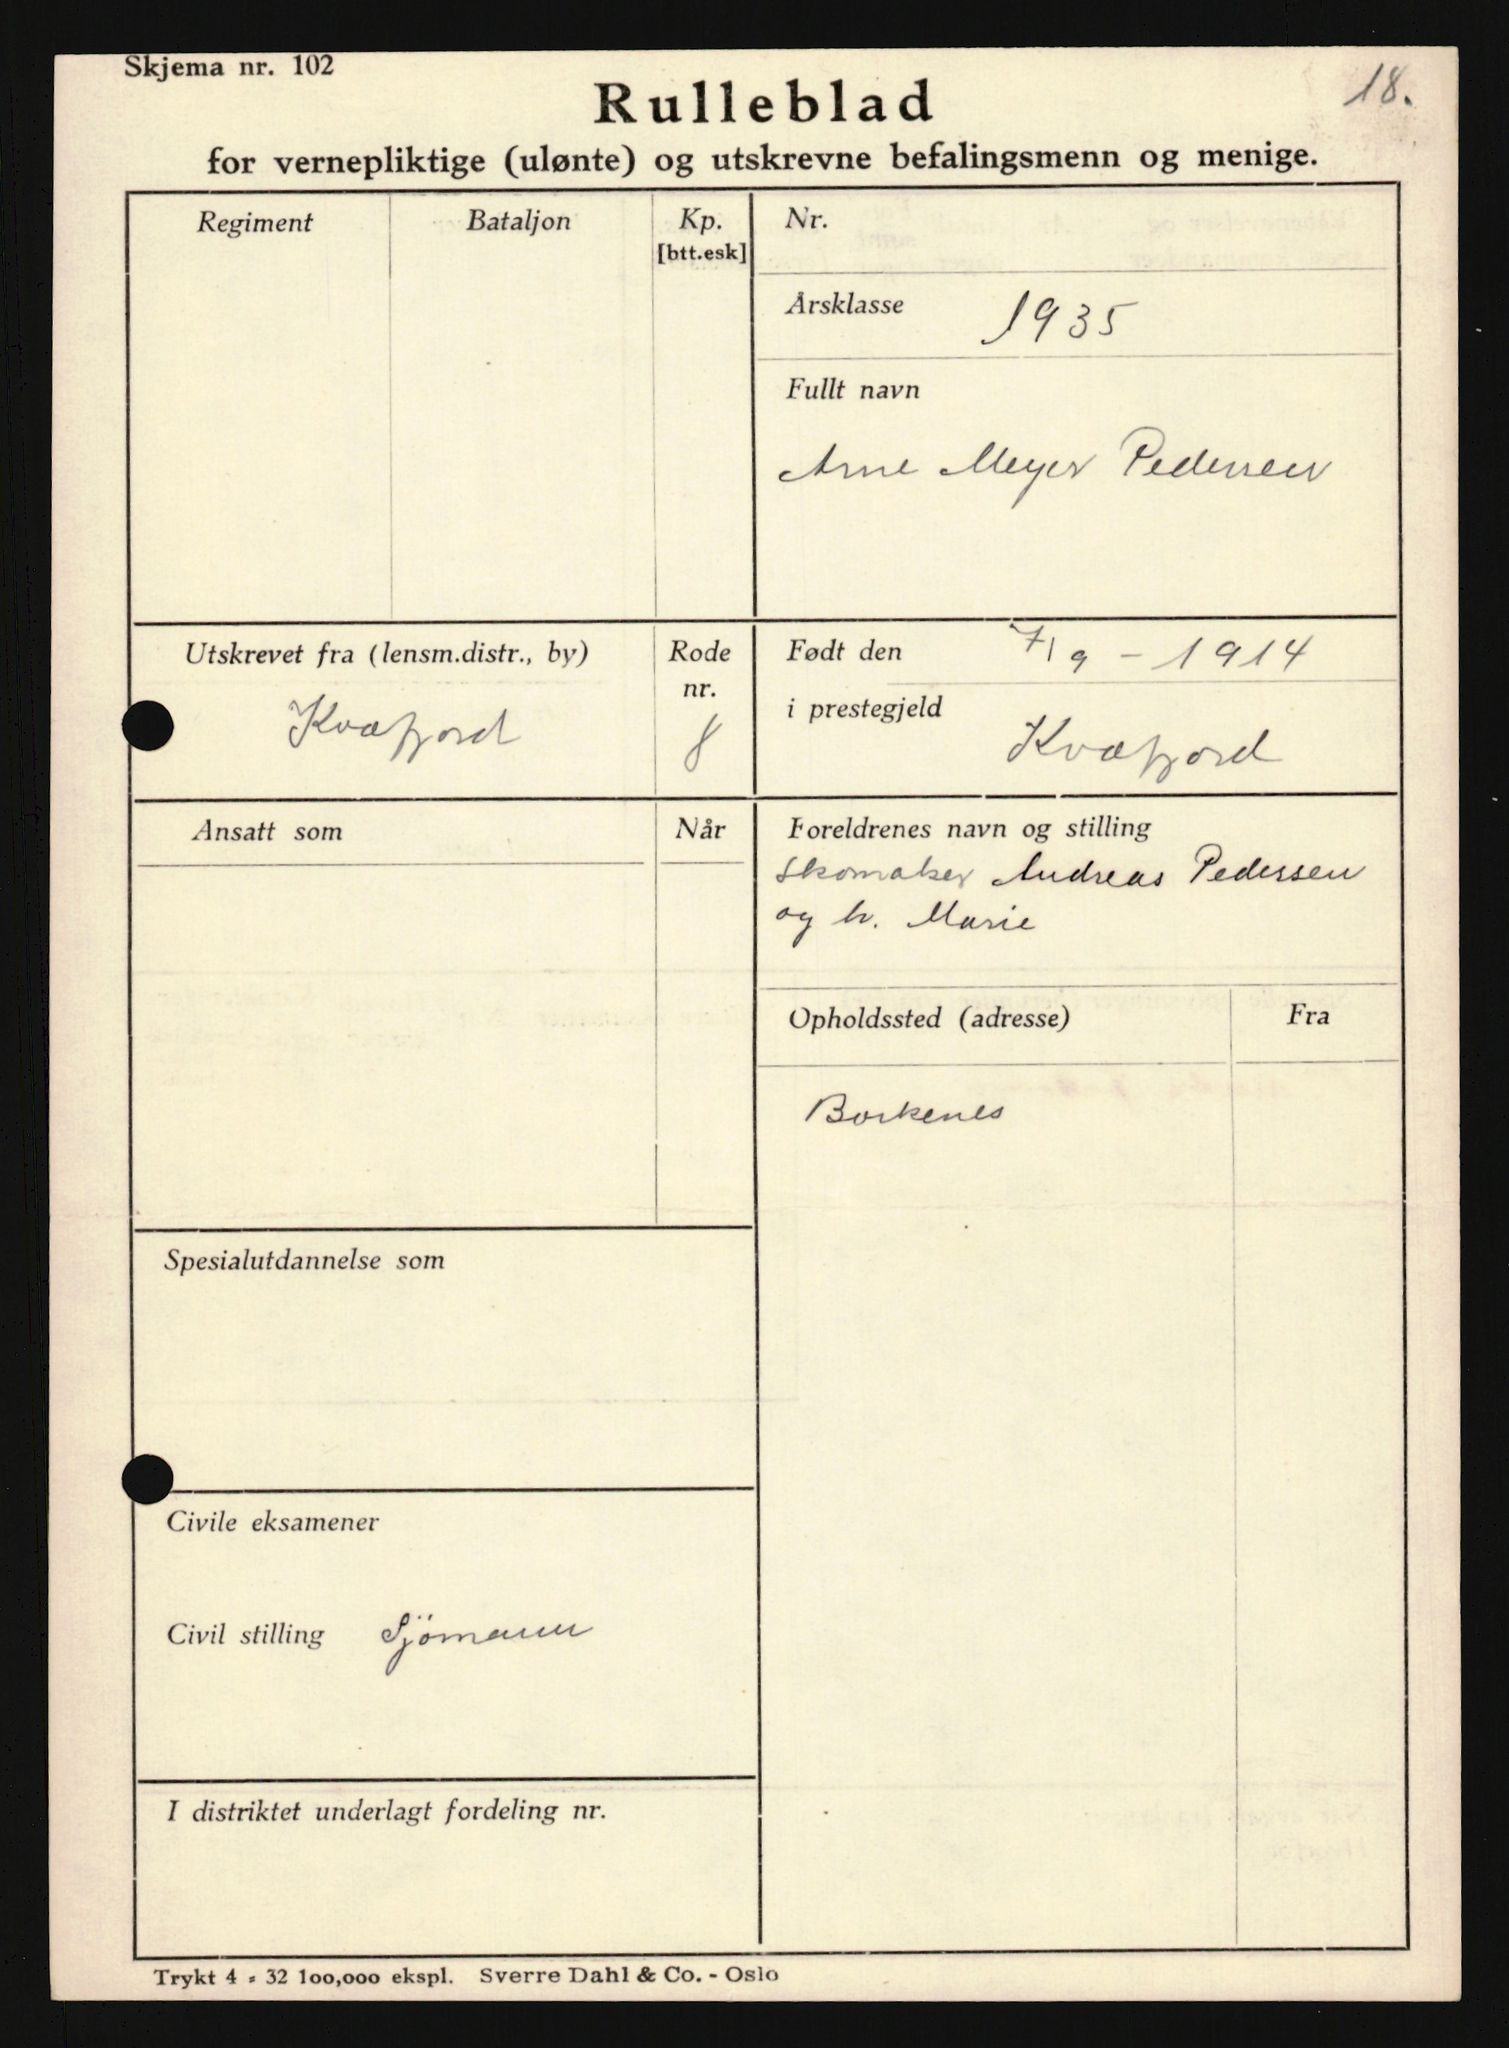 Skjema nr. 102
18.
Rulleblad
for vernepliktige (ulønte) og utskrevne befalingsmenn og menige.
Regiment
Bataljon
Kp.
[btt.esk]
Nr.
Årsklasse 1935
Fullt navn
Arne Meyer Pedersen
Utskrevet fra (lensm.distr., by)
Kvæfjord
Rode
nr.
8
Født den 7/9 - 1914
i prestegjeld
Kvæfjord
Ansatt som
Når
Foreldrenes navn og stilling
Skomaker Andreas Pedersen
og h. Marie
Opholdssted (adresse)
Fra
Borkenes
Spesialutdannelse som
Civile eksamener
Civil stilling Sjömann
I distriktet underlagt fordeling nr.
Trykt 4 - 32 100,000 ekspl. Sverre Dahl & Co. - Oslo